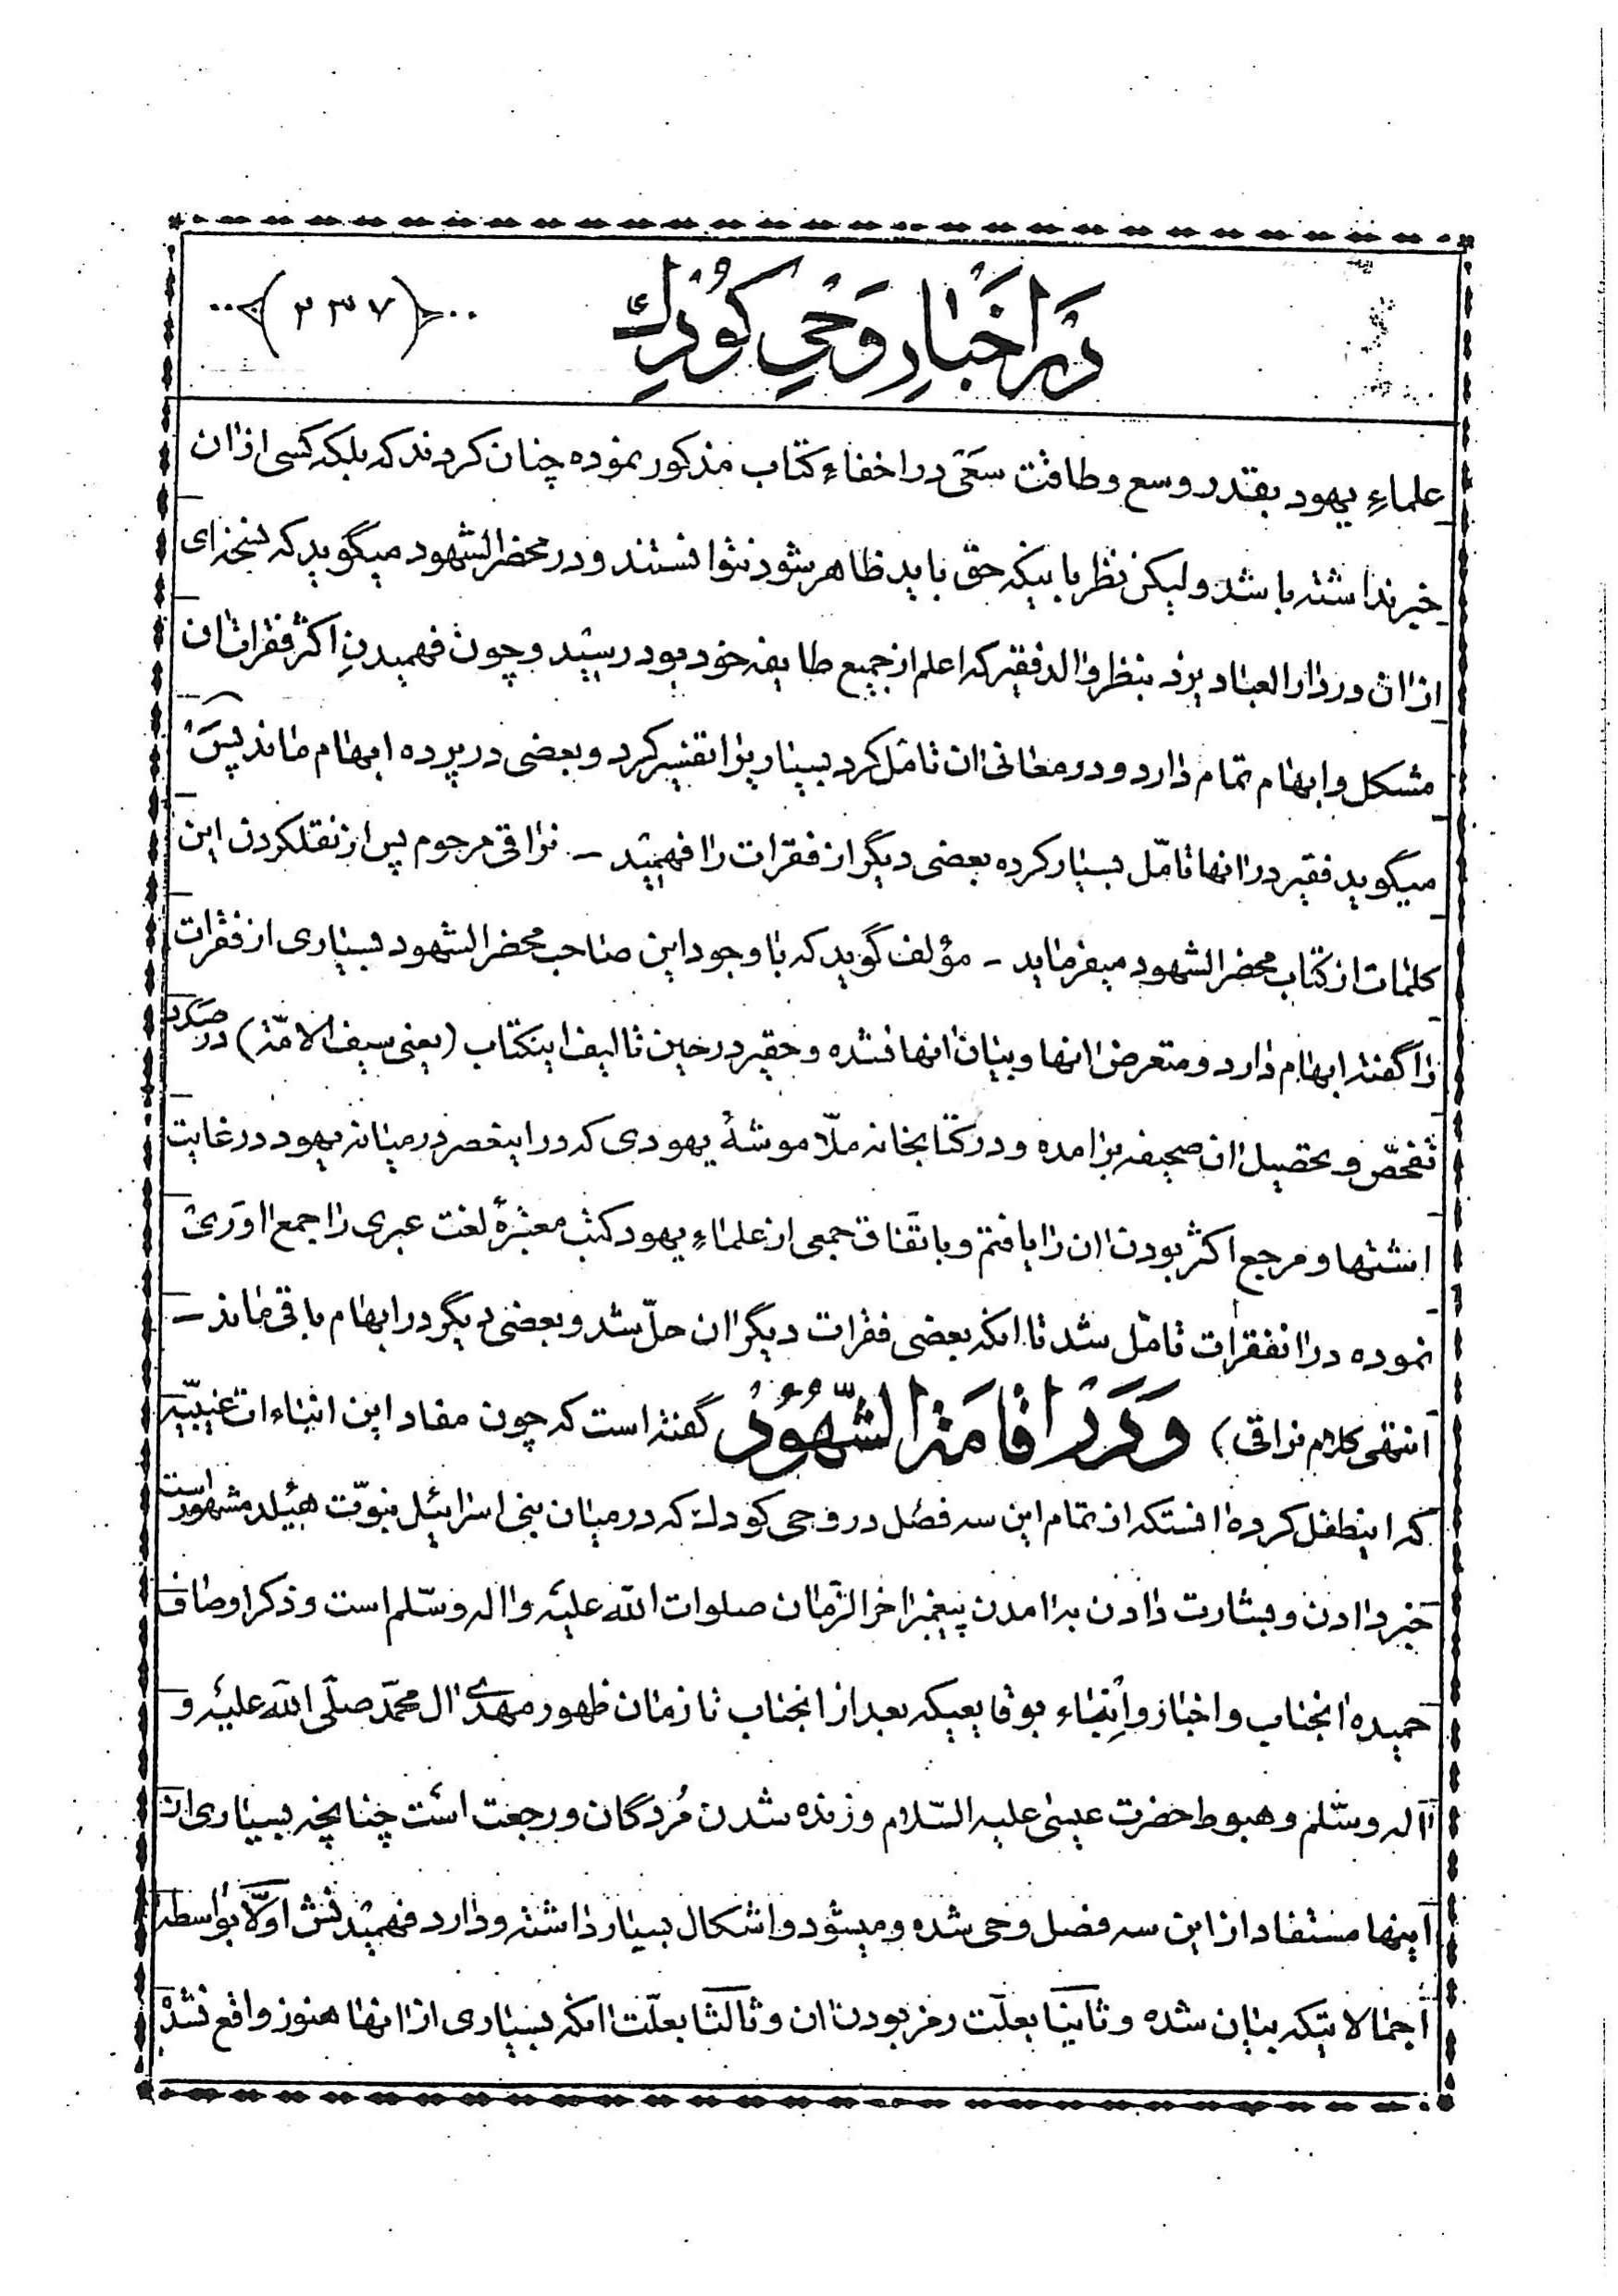 در اخبار وحی کودک
(۲۳۷)
علماءِ یهود بقدر وسع و طاقت سعی در اخفاءِ کتاب مذکور نموده چنان کردند که بلکه کسی از ان
خبر نداشته باشد ولیکن نظر باینکه حق باید ظاهر شود نتوانستند و در محضر الشهود میگوید که نسخه‌ای
از ان در دار العباد یزد بنظر والد فقیر که اعلم از جمیع طایفه خود بود رسید و چون فهمیدنِ اکثر فقرات ان
مشکل و ابهام تمام دارد و در معانی ان تأمل کرد بسیاریرا تفسیر کرد و بعضی در پرده ابهام ماند پس
میگوید فقیر در انها تامّل بسیار کرده بعضی دیگر از فقرات را فهمید – نراقی مرحوم پس از نقلکردن این
کلمات از کتاب محضر الشهود میفرماید – مؤلف گوید که با وجود این صاحب محضر الشهود بسیاری از فقرات
را گفته ابهام دارد و متعرض انها و بیان انها نشده و حقیر در حین تالیف اینکتاب (یعنی سیف الامّة) در صدد
تفحّص و تحصیل ان صحیفه برامده و در کتابخانه ملّا موشهٔ یهودی که در اینعصر در میانه یهود در غایت
اشتها و مرجع اکثر بودن ان را یافتم و باتفاق جمعی از علماءِ یهود کتب معتبرهٔ لغت عبری را جمع اوری
نموده در انفقرات تامّل شد تا انکه بعضی فقرات دیگر ان حلّ شد و بعضی دیگر در ابهام باقی ماند –
انتهی کلام نراقی) و در اقامة الشّهود گفته است که چون مفاد این انباءات غیبیّه
که اینطفل کرده انستکه از تمام این سه فصل در وحی کودک که در میان بنی اسرائیل بنبوّت هیلد مشهور است
خبر دادن و بشارت دادن برامدن پیغمبر اخر الزّمان صلوات الله علیه واله وسّلم است و ذکر اوصاف
حمیده انجناب و اخبار و اِنباء بوقایعیکه بعد از انجناب تا زمان ظهور مهدی ال محمّد صلّی الله علیه و
اله وسّلم و هبوط حضرت عیسی علیه السّلام و زنده شدن مُردگان و رجعت است چنانچه بسیاری از
اینها مستفاد از این سه فصل وحی شده و میشود و اشکال بسیار داشته و دارد فهمیدنش اوّلا بواسطه
اجمالاتیکه بیان شده و ثانیا بعلّت رمز بودن ان و ثالثا بعلّت انکه بسیاری از انها هنوز واقع نشده